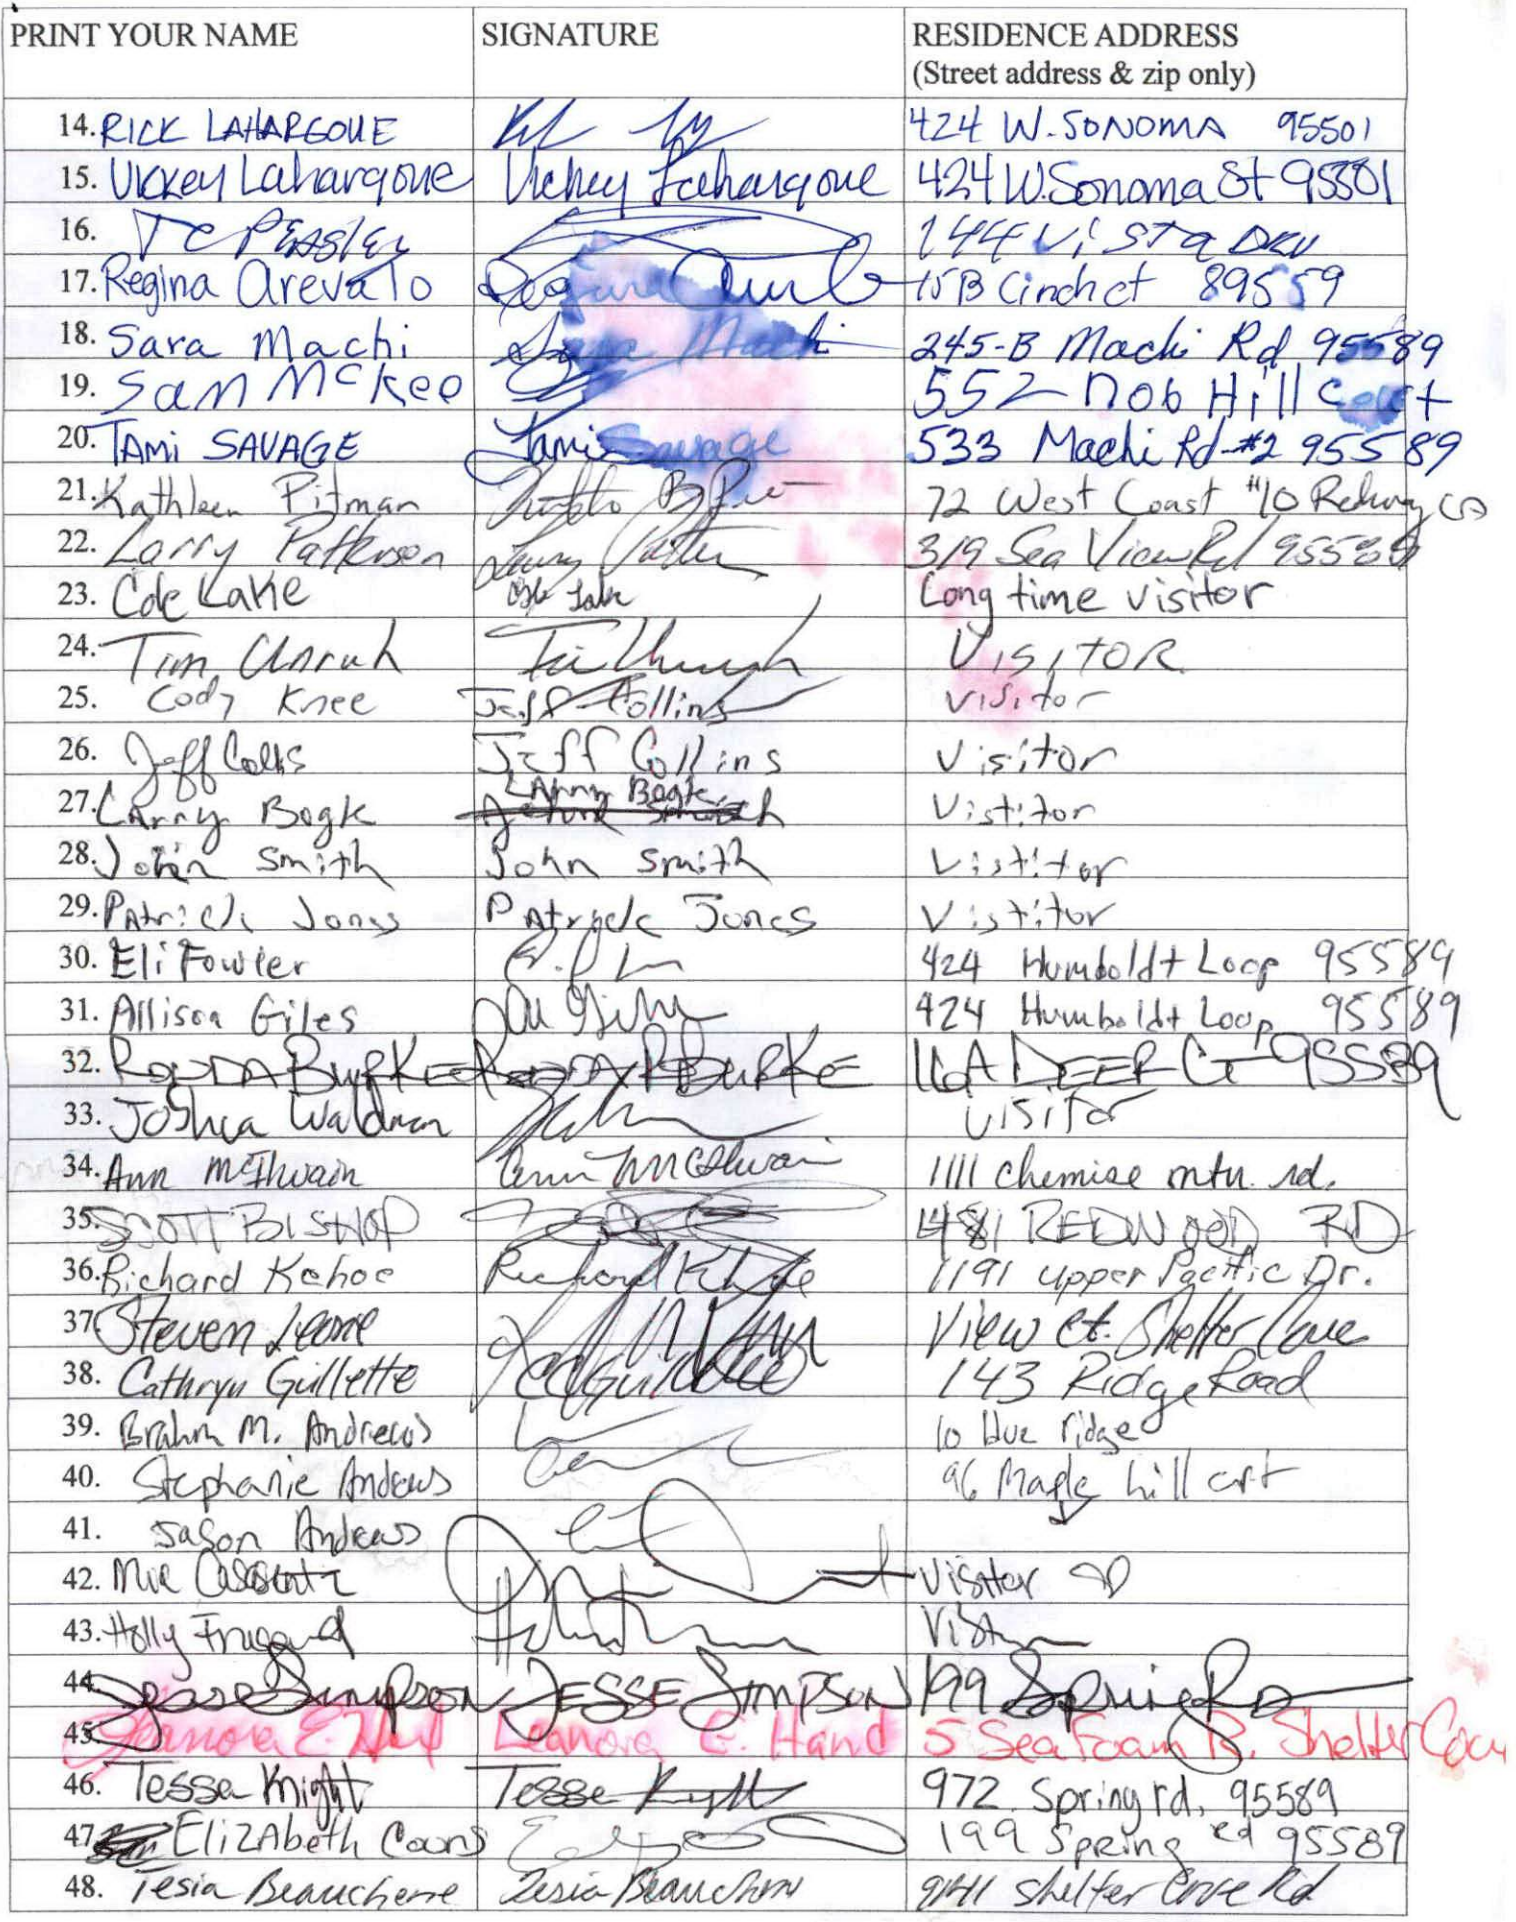 PRINT YOUR NAME SIGNATURE RESIDENCE ADDRESS
(Street address & zip only)
14. RICK LAHARGOUE 424 W. SONOMA 95501
15. Vickey Lahargoue Vickey Lahargoue 424 W. Sonoma St 95501
16. TC PEASLEY 144 Vista
17. Regina Arevalo Regina 15B Cinch ct 89559
18. Sara Machi Sara Machi 245-B Machi Rd 95589
19. Sam McKee 552 Nob Hill Court
20. TAMI SAVAGE Tami Savage 533 Machi Rd #2 95589
21. Kathleen Pitman 72 West Coast #10 Redway CA
22. Larry Patterson Larry 319 Sea View Rd
23. Cole Lake Cole Lake Long time visitor
24. Tim Unruh Tim Unruh VISITOR
25. Cody Knee Jeff Collins visitor
26. Jeff Jeff Collins Visitor
27. Larry Bogk Larry Bogk Vistitor
28. John Smith John Smith Vistitor
29. Patrick Jones Patrick Jones Vistitor
30. Eli Fowler 424 Humboldt Loop 95589
31. Allison Giles 424 Humboldt Loop 95589
32. RONDA BURKE BURKE 16A DEER CT 95589
33. Joshua Waldman visitor
34. Ann McIlwain Ann McIlwain 1111 chemise mtn. rd.
35. SCOTT BISHOP 1481 REDWOOD RD
36. Richard Kehoe Richard Kehoe 1191 upper Pacific Dr.
37. Steven View ct. Shelter Cove
38. Cathryn Gillette 143 Ridge Road
39. Brahm M. Andrews 10 blue ridge
40. Stephanie Andrews 96 Maple hill crt
41. Jason Andrews
42. Visitor
43. Holly
44. Jesse Simpson JESSE SIMPSON 199 Spring RD
45. Leanora E. Hand Leanora E. Hand 5 Sea Foam R. Shelter Cove
46. Tessa Knight Tessa Knight 972 Spring rd. 95589
47. Elizabeth 199 Spring rd 95589
48. Tesia Beauchene Tesia 9141 Shelter Cove Rd